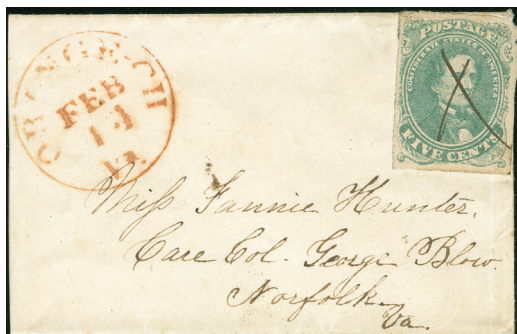 ORANGE C.H
FEB
14
Va.
POSTAGE
CONFEDERATE STATES OF AMERICA
FIVE CENTS
Miss Fannie Hunter.
Care Col. George Blow.
Norfolk
Va.